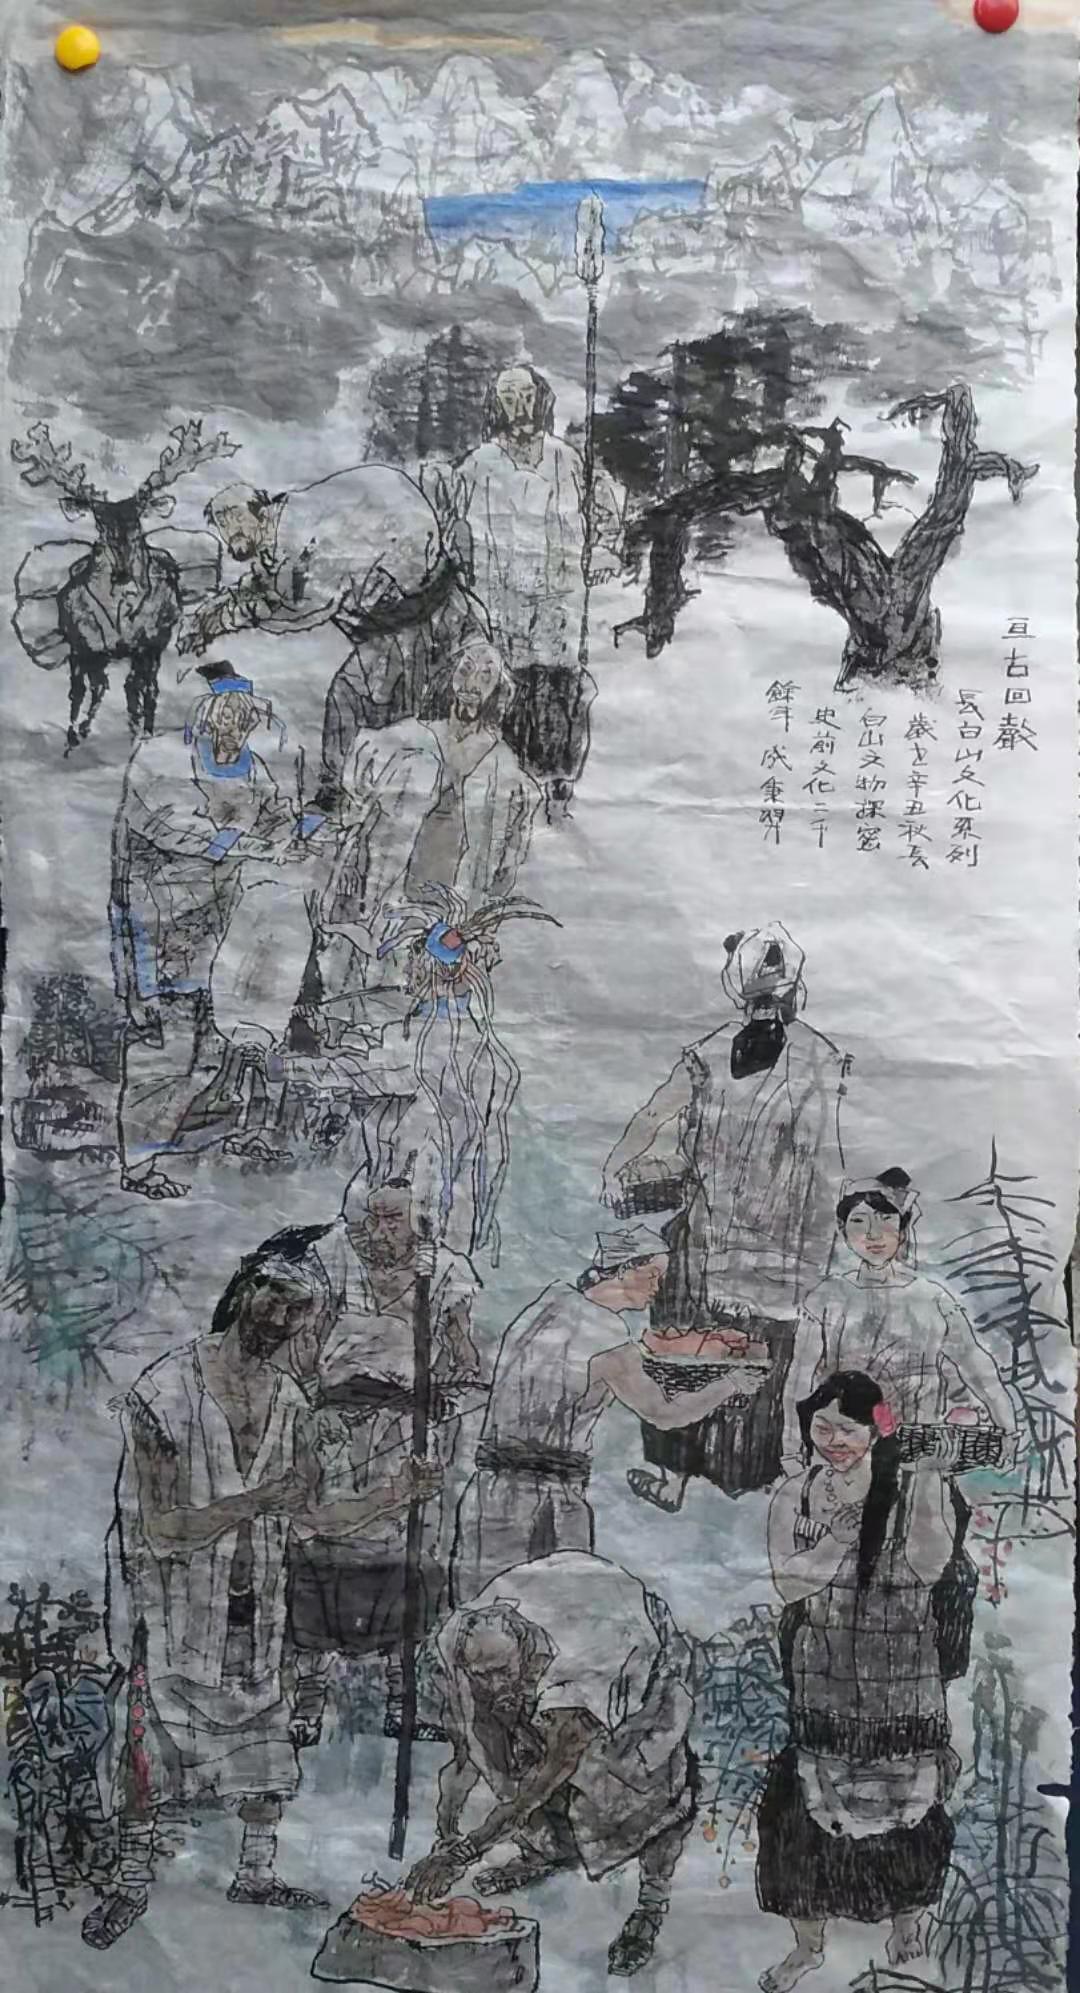 亘古回聲
長白山文化系列
歲之辛丑秋長
白山文物探密
史前文化二千
餘年 成秉羿